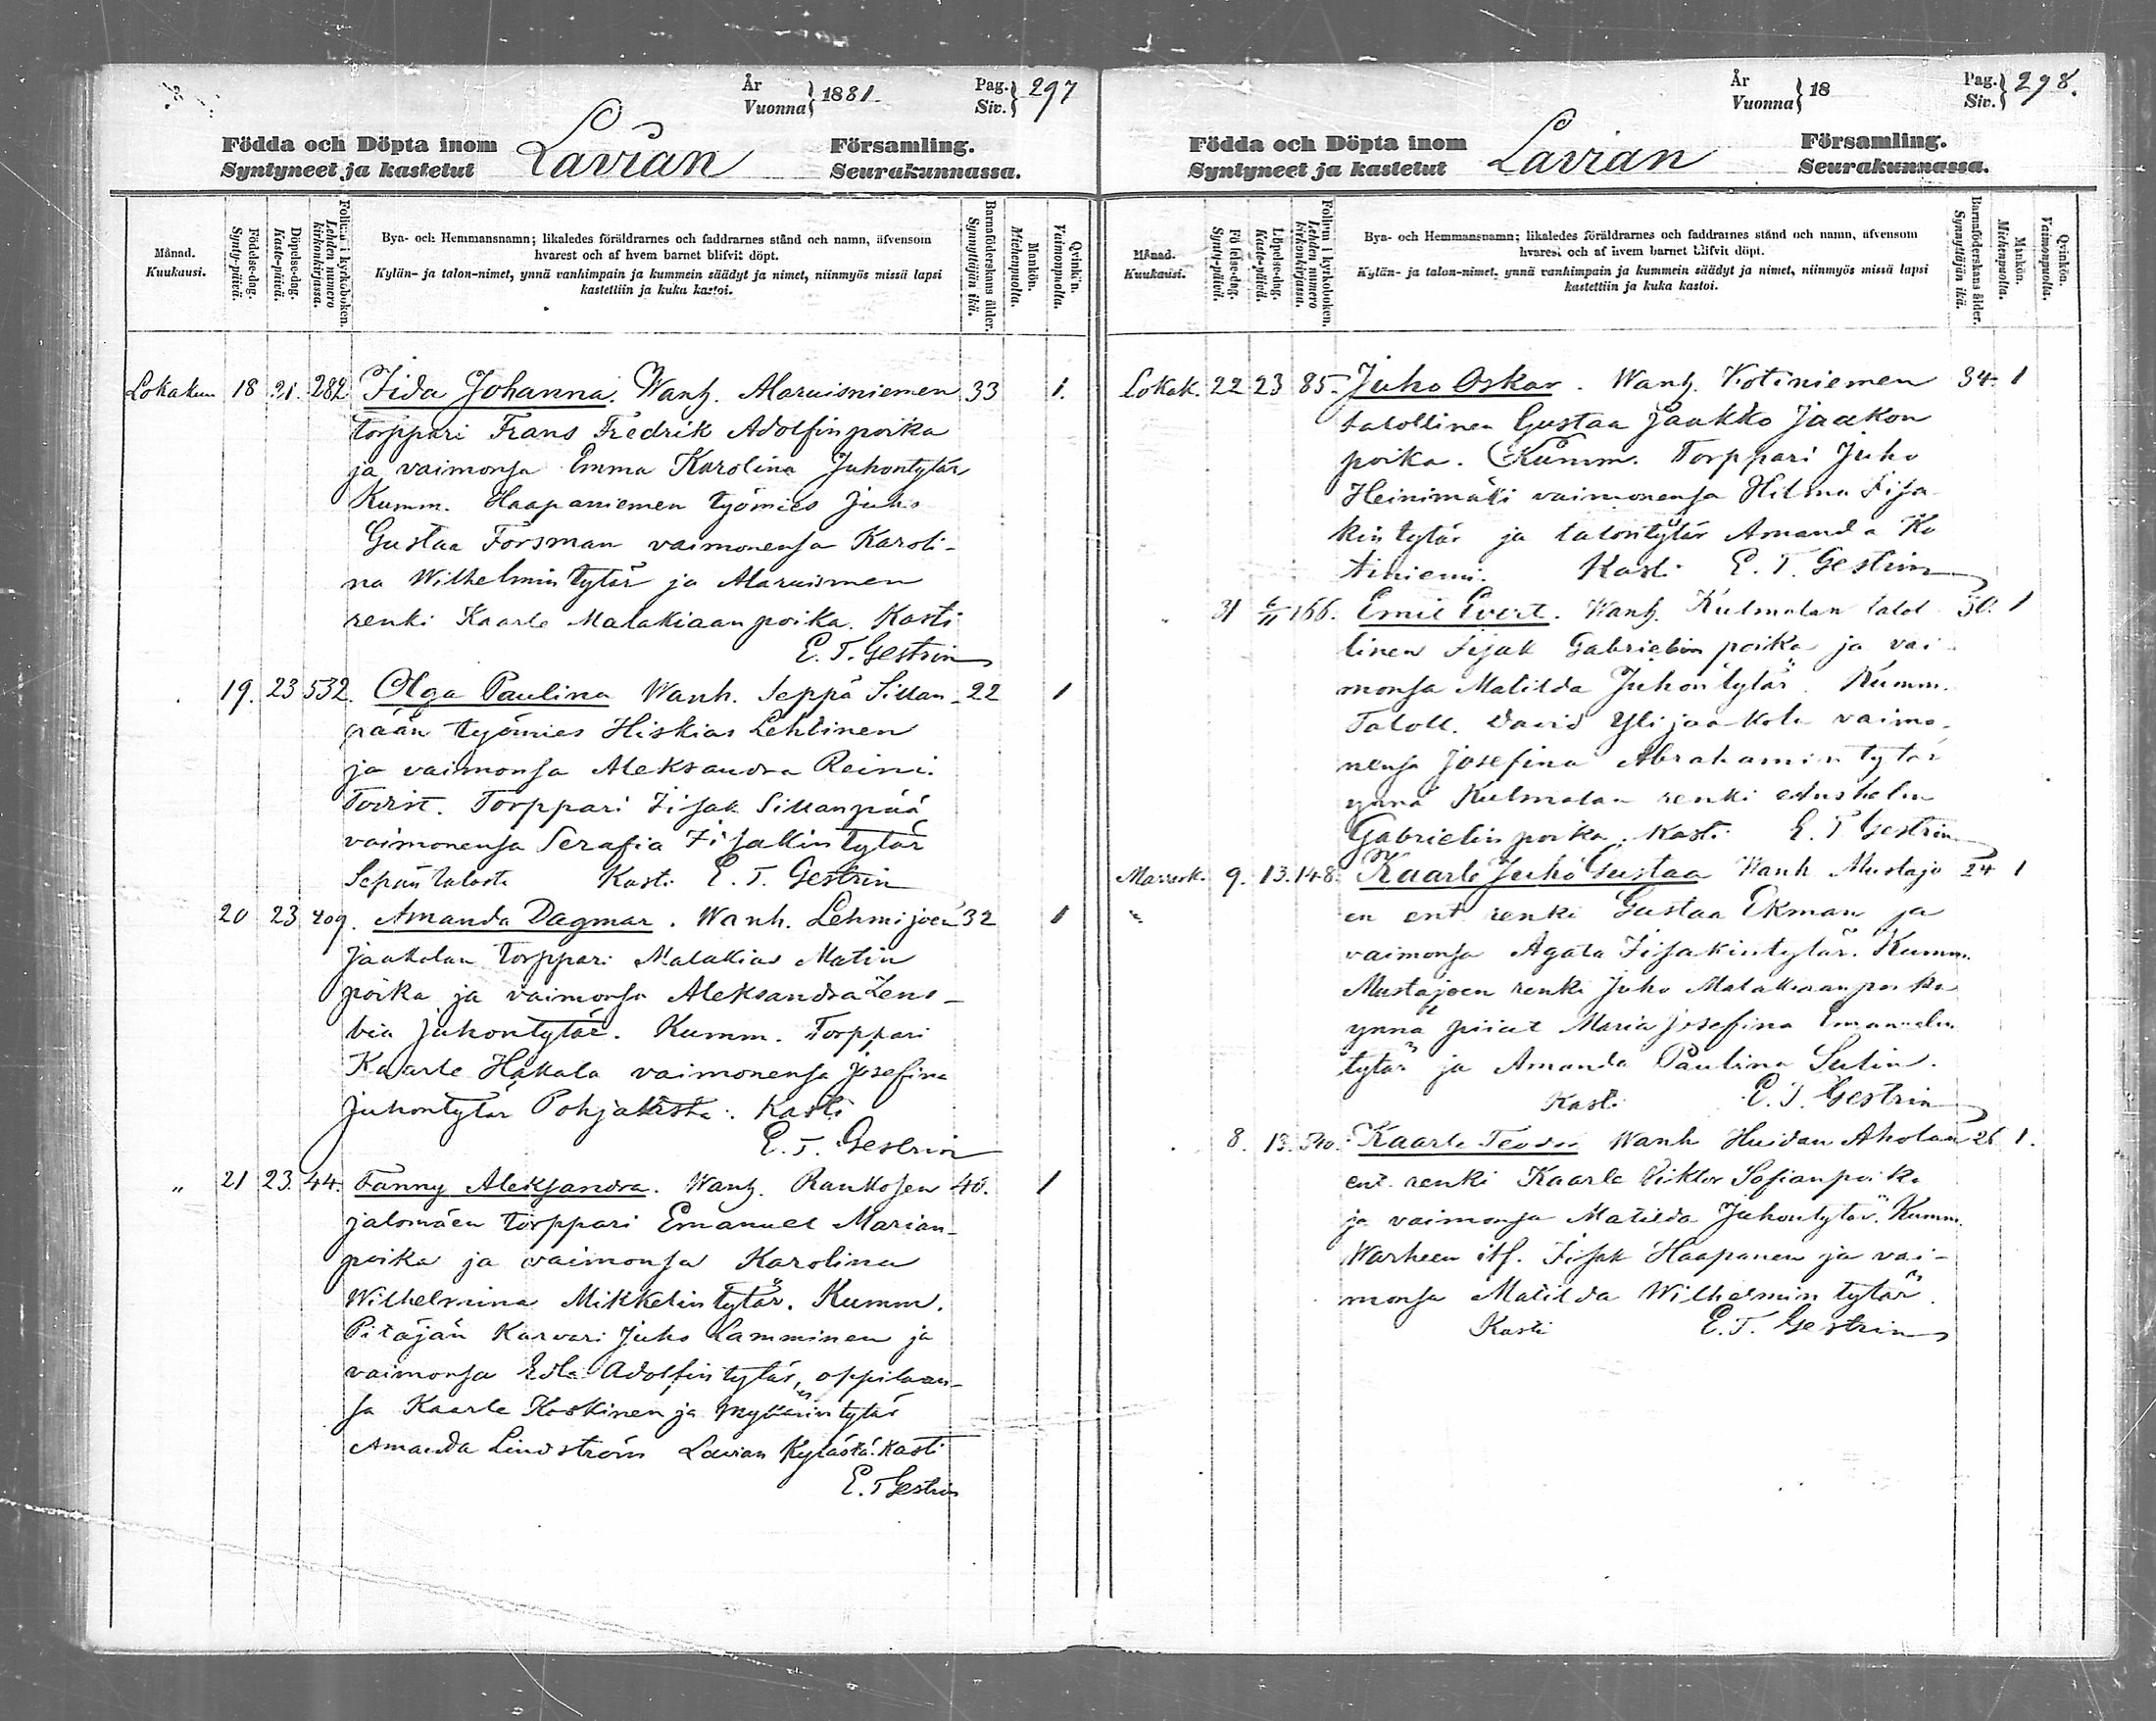 År
Vuonna } 1881.
Pag.
Siv. } 297
Födda och Döpta inom
Syntyneet ja kastetut
Lavian
Församling.
Seurakunnassa.
Månad.
Kuukausi.
Födelse-dag.
Synty-päivä.
Döpelse-dag.
Kaste-päivä.
Folium i kyrkoboken.
Lehden numero
kirkonkirjassa.
Bya- och Hemmansnamn; likaledes föräldrarnes och faddrarnes stånd och namn, äfvensom
hvarest och af hvem barnet blifvit döpt.
Kylän- ja talon-nimet, ynnä vanhimpain ja kummein säädyt ja nimet, niinmyös missä lapsi
kastettiin ja kuka kastoi.
Barnaföderskans ålder.
Synnyttäjän ikä.
Mankön.
Miehenpuolta.
Qvinkön.
Vaimonpuolta.
Lokakuu 18 21. 282 Fida Johanna. Wanh. Alaruisniemen 33 1.
torppari Frans Fredrik Adolfin poika
ja vaimonsa Emma Karolina Juhontytär
Kumm. Haapaniemen työmies Juho
Gustaa Forsman vaimonensa Karoli-
na Wilhelmin tytär ja
renki Kaarle Malakiaan poika. Kasti
E. T. Gestrin
19. 23 532. Olga Paulina Wanh. Seppä Sillan- 22 1
pään työmies Hiskias Lehtinen
ja vaimonsa Aleksandra Reini.
Todist. Torppari Iisak Sillanpää
vaimonensa Serafia Iisakin tytär
Sepän talosta Kasti E. T. Gestrin
20 23 409. Amanda Dagmar. Wanh. Lehmijoen 32 1
Jaakolan torppari Malakias Matin
poika ja vaimonsa Aleksandra Leno-
bia Juhontytär. Kumm. Torppari
Kaarle Hakala vaimonensa Josefina
Juhontytär Kasti
E. T. Gestrin
„ 21 23. 44. Fanny Aleksandra. Wanh. Raukosen 40. 1
jalomäen torppari Emanuel Marian-
poika ja vaimonsa Karolina
Wilhelmina Mikkelin tytär. Kumm.
Pitäjän Karvari Juho Lamminen ja
vaimonsa Edla Adolfin tytär, oppilaan-
sa Kaarle Koskinen ja
Amanda Lindström Lavian Kylästä. Kasti
E. T Gestrin
År
Vuonna } 18
Pag.
Siv. } 298.
Födda och Döpta inom
Syntyneet ja kastetut
Lavian
Församling.
Seurakunnassa.
Månad.
Kuukausi.
Födelse-dag.
Synty-päivä.
Löpelse-dag.
Kaste-päivä.
Folium i kyrkoboken.
Lehden numero
kirkonkirjassa.
Bya- och Hemmansnamn; likaledes föräldrarnes och faddrarnes stånd och namn, äfvensom
hvarest och af hvem barnet blifvit döpt.
Kylän- ja talon-nimet, ynnä vanhimpain ja kummein säädyt ja nimet, niinmyös missä lapsi
kastettiin ja kuka kastoi.
Barnaföderskans ålder.
Synnyttäjän ikä.
Mankön.
Miehenpuolta.
Qvinkön.
Vaimonpuolta.
Lokak. 22 23 85. Juho Oskar. Wanh. Kotiniemen 34. 1
talollinen Gustaa Jaakko Jaakon
poika. Kumm. Torppari Juho
Heinimäki vaimonensa Hilma Iisa
kin tytär ja talontytär Amanda Ko
tiniemi. Kasti E. T. Gestrin
31 6/11 166. Emil Evert. Wanh. Kulmalan talol 30. 1
linen Iisak Gabrielin poika ja vai-
monsa Matilda Juhontytär. Kumm.
Taloll. David Ylijaakola vaimo-
nensa Josefina Abrahamin tytär
ynnä Kulmalan renki
Gabrielin poika. Kasti E. T Gestrin
Marrask. 9. 13. 148. Kaarle Juho Gustaa Wanh Mustajo 24 1
en ent renki Gustaa Ekman ja
vaimonsa Agata Iisakintytär. Kumm.
Mustajoen renki Juho Malakiaanpoika
ynnä piiat Maria Josefina Emanuelin
tytär ja Amanda Paulina Sulin.
Kasti E. T. Gestrin
8. 13. 540. Kaarle Teodor Wanh Huidan Aholan 26 1.
ent. renki Kaarle Viktor Sofianpoika
ja vaimonsa Matilda Juhontytär. Kumm.
Warheen itf. Iisak Haapanen ja vai-
monsa Matilda Wilhelmin tytär.
Kasti E. T. Gestrin